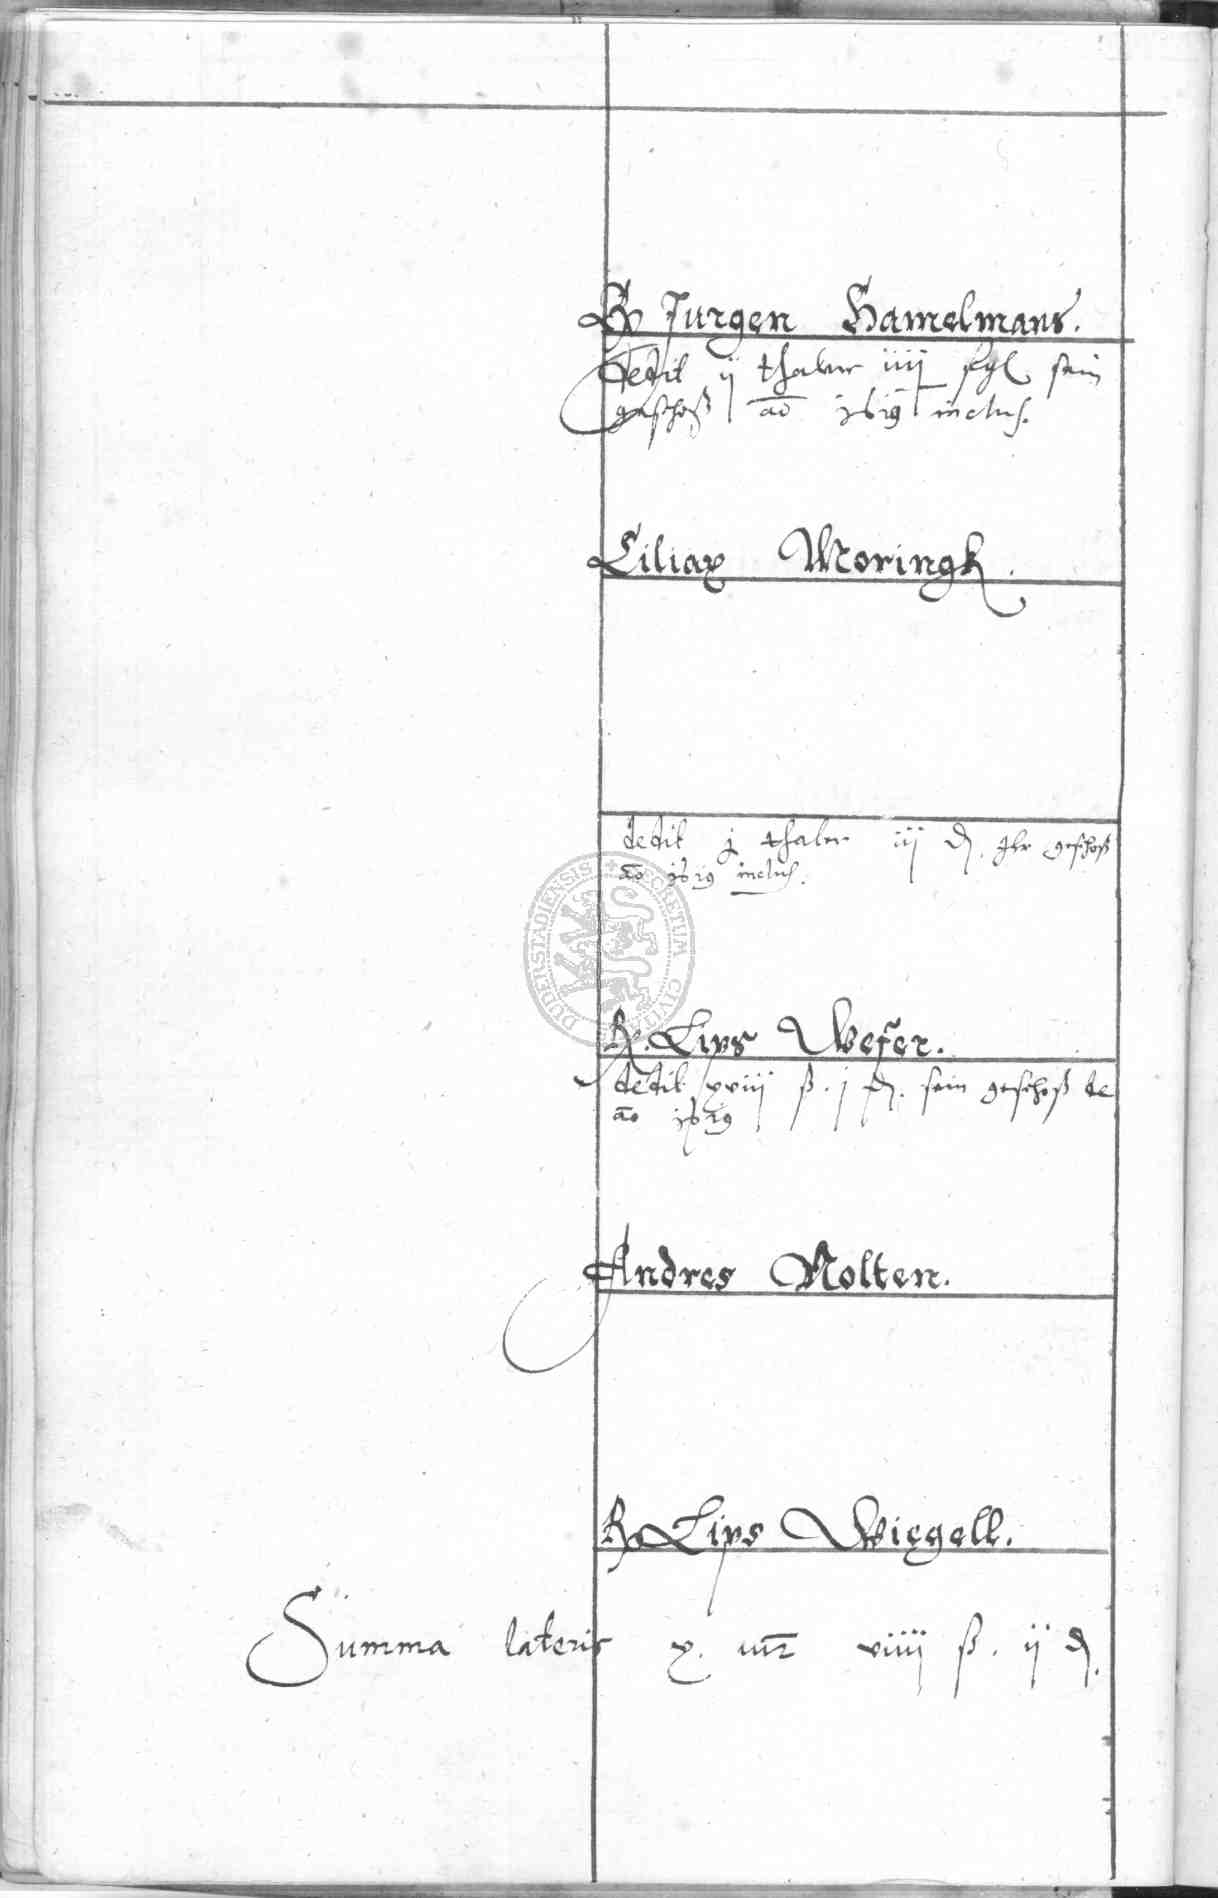 R Jurgen Hamelmans.
dedit ij thaler iiij ßgl sein
geschoß ao 1619 inclus.
Ciliax Moringk.
dedit j thaler iij d. ihr geschoß
ao 1619 inclus.
SECRETUM CIVITATIS DUDERSTADIENSIS
R. Lips Weser.
dedit xviij ß. j d. sein geschoß de
ao 1619
Andres Nolten.
R Lips Wiegell.
Summa lateris x. mr viiij ß. ij d.